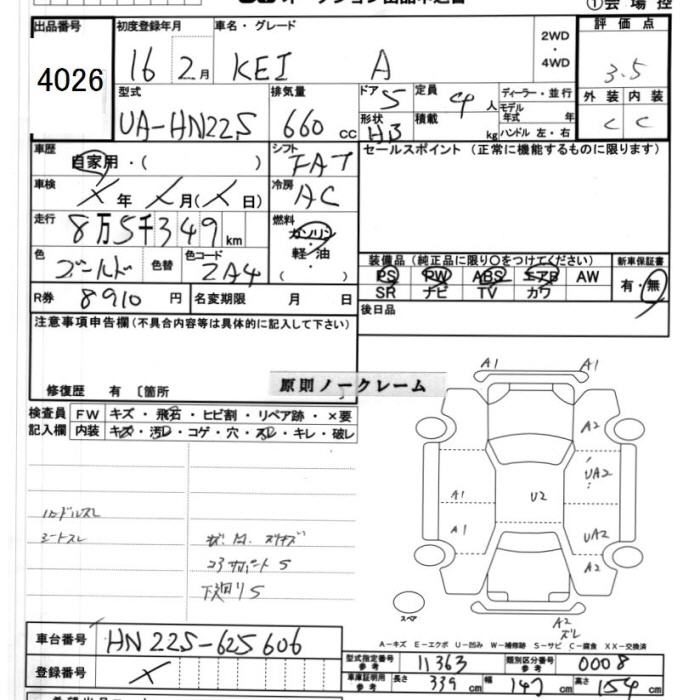 ①会場控
出品番号
4026
初度登録年月
16 2月
車名・グレード
KEI A
2WD
・
4WD
評価点
3.5
外装 内装
C C
型式
UA-HN22S
排気量
660 cc
ドア 5
形状 HB
定員 4人
積載 kg
ディーラー・並行
モデル
年式 年
ハンドル 左・右
車歴
自家用・( )
シフト
FAT
セールスポイント(正常に機能するものに限ります)
車検
X年 X月(X日)
冷房
AC
走行
8万5千349km
燃料
ガソリン
・
軽・油
( )
色
ゴールド
色替
色コード
ZA4
装備品(純正品に限り○をつけてください)
PS PW ABS エアB AW
SR ナビ TV カワ
新車保証書
有・無
R券 8910円
名変期限 月 日
後日品
注意事項申告欄(不具合内容等は具体的に記入して下さい)
修復歴 有 〔箇所
原則ノークレーム
検査員
記入欄
FW キズ・飛石・ヒビ割・リペア跡・×要
内装 キズ・汚レ・コゲ・穴・スレ・キレ・破レ
ハンドルスレ
シートスレ
コアサポートS
下廻りS
A1 A1
A2
UA2
A1
U2
A1
UA2
A2
スペア
A2
ズレ
A-キズ E-エクボ U-凹み W-補修跡 S-サビ C-腐食 XX-交換済
車台番号 HN22S-625606
登録番号 X
型式指定番号
参考
11363
類別区分番号
参考
0008
車庫証明用
参考
長さ 339cm 幅 147cm 高さ 154cm